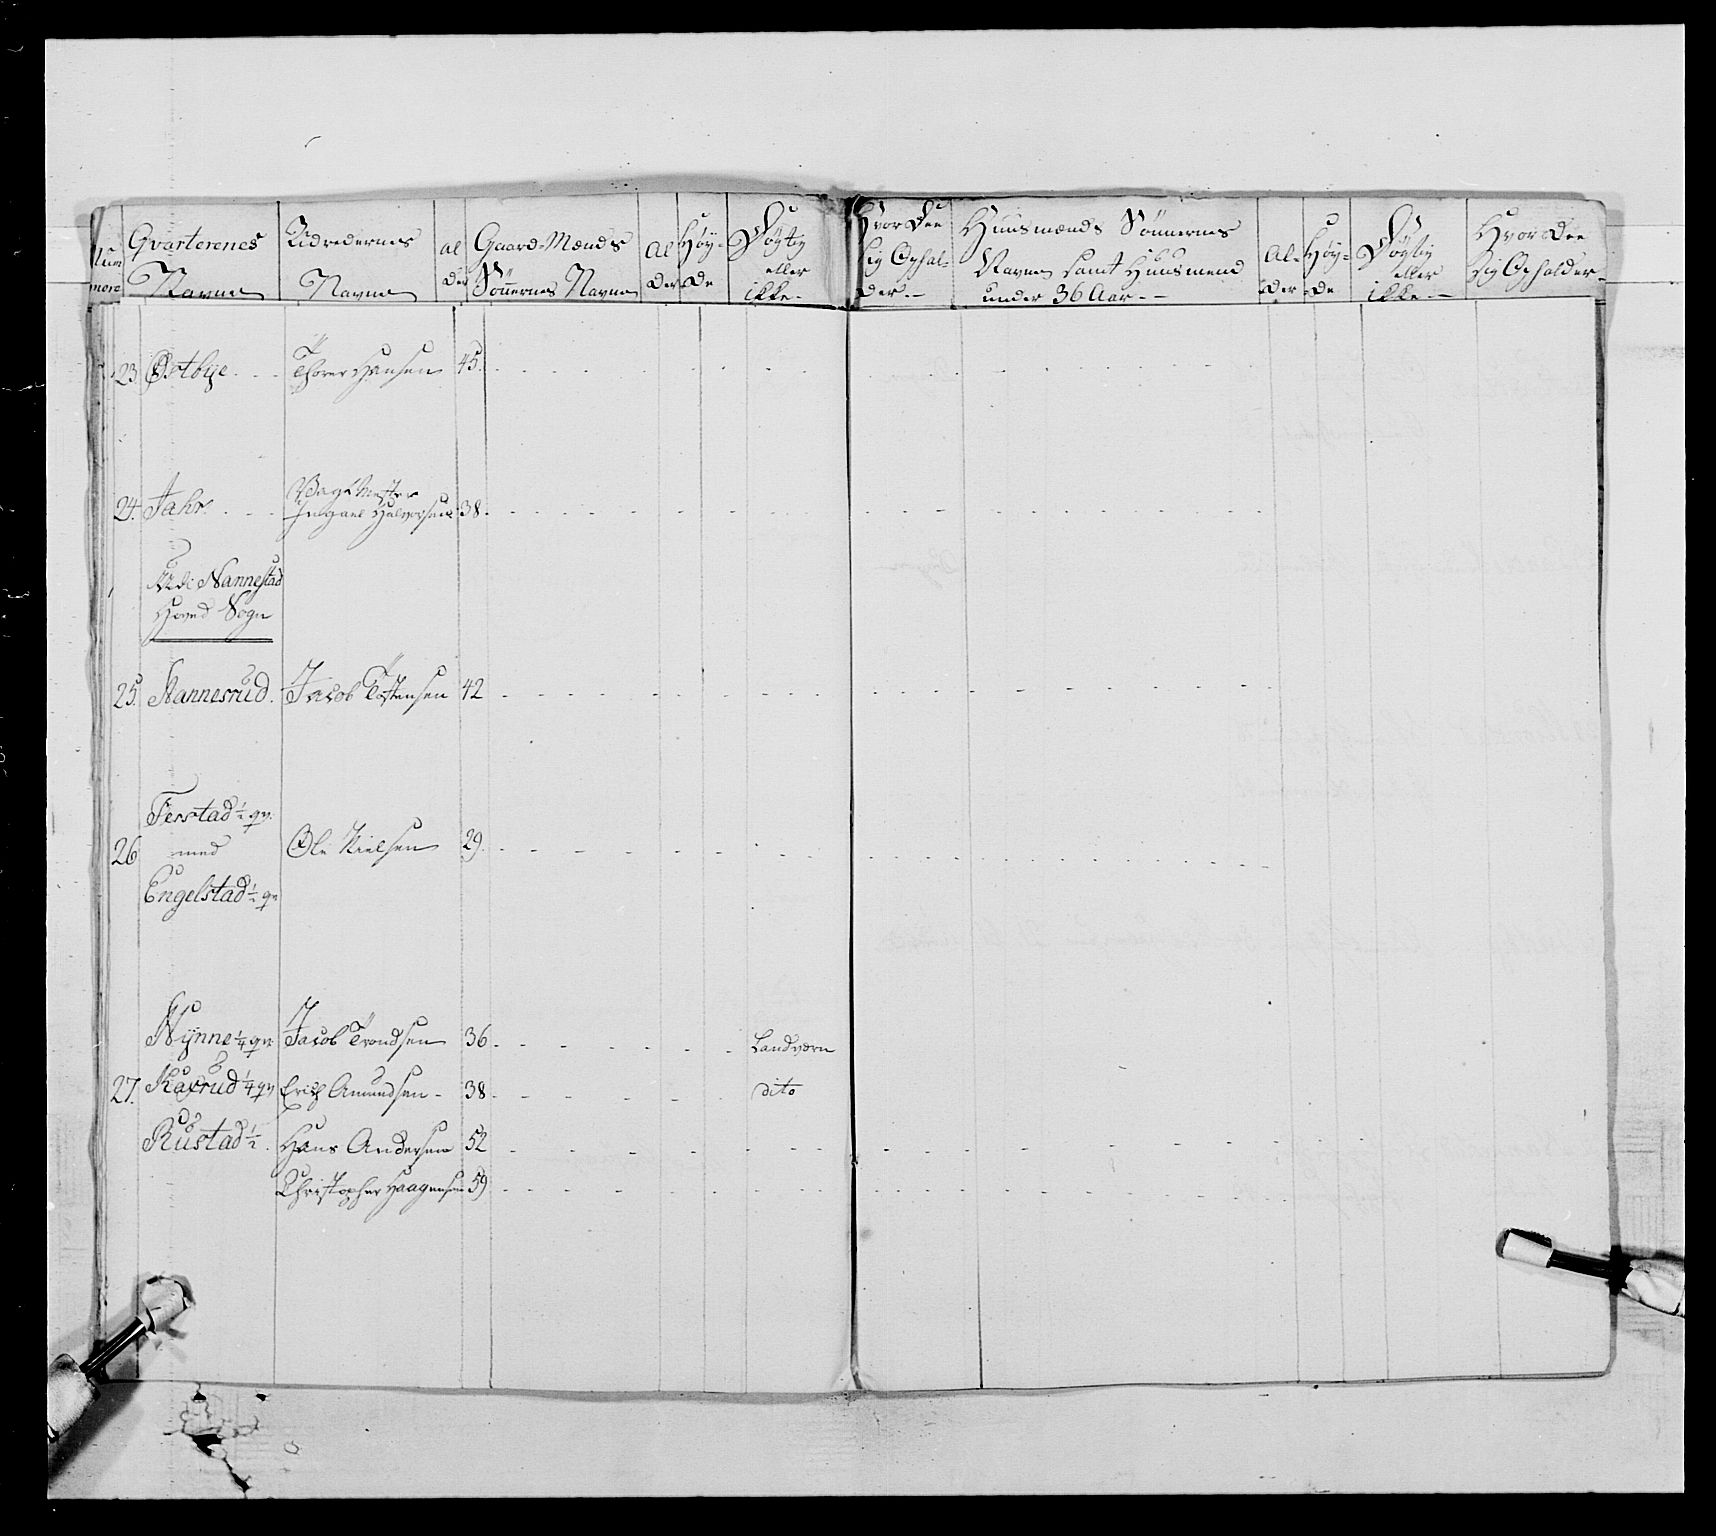 Num
mere
Gvarterenes
Navne
Udredernes
Navne
al
der
Gaard-Mænds
Sönnernes Navne
Al
der
Höy-
de
Dögtig
eller
ikke.-
Hvor Dee
sig Ophol-
der.-
Huusmænds Sönnernes
Navne samt Huusmend
under 36 Aar.-
Al-
der
Höy-
de
Dögtig
eller
ikke.-
Hvor dee
sig Opholder.
23. Østbye. Thorer Hansen 45.
24. Jahr. Vagt Mester
Halvorsen 38.
Udi Nannestad
Hoved Sogn
25. Nannesrud. Jacob Tostensen 42
Ferstad ½ qv.
26 med Ole Nielsen 29.
Engelstad ½ qv
Nÿnne ¼ qv. Jacob Trondsen 36. Landværn
27. Kaxrud ¼ qv Erich Amundsen - 38. dito
Rustad ½. Hans Andersen 52
Christopher Haagensen 59